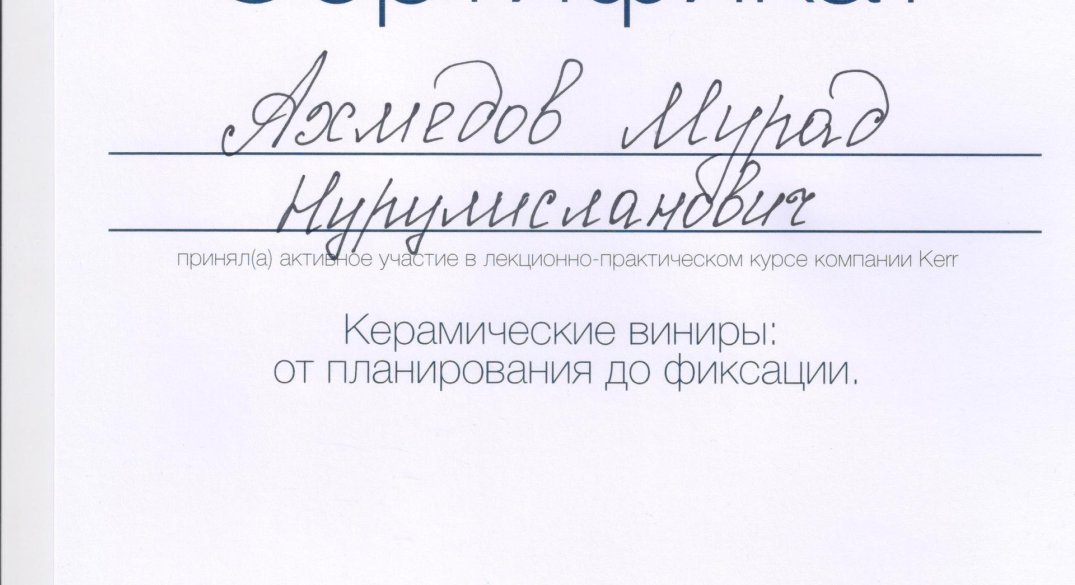 Сертификат
Ахмедов Мурад
Нурулисланович
принял(а) активное участие в лекционно-практическом курсе компании Kerr
Керамические виниры:
от планирования до фиксации.